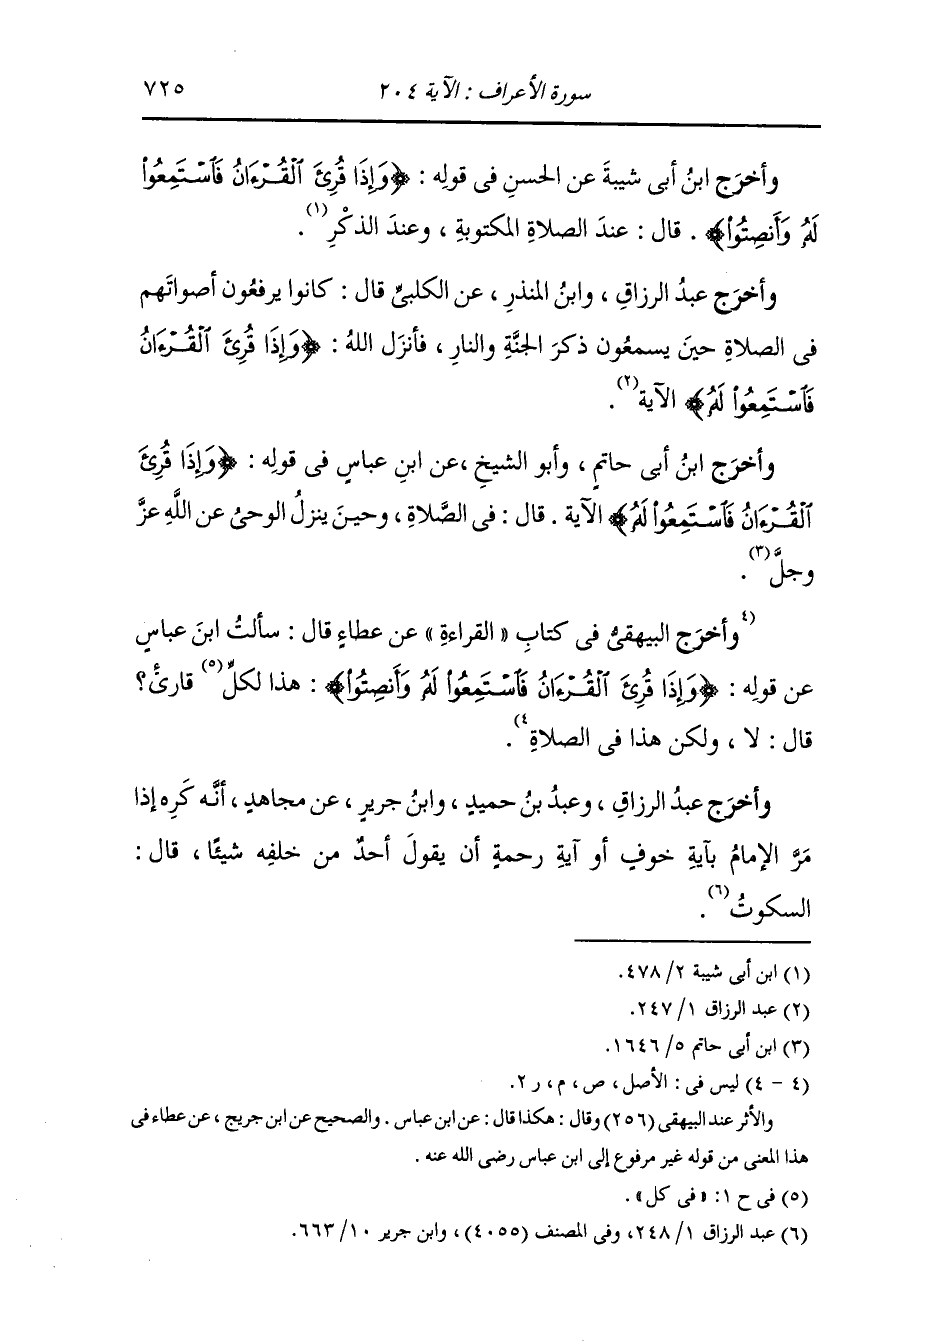 سورة الأعراف : الآية ٢٠٤ ٧٢٥
وأخرَج ابنُ أبى شيبةَ عن الحسنِ فى قولِه : ﴿وَإِذَا قُرِئَ ٱلْقُرْءَانُ فَٱسْتَمِعُوا۟
لَهُۥ وَأَنصِتُوا۟﴾ . قال : عندَ الصلاةِ المكتوبةِ ، وعندَ الذكْرِ(١) .
وأخرَج عبدُ الرزاقِ ، وابنُ المنذرِ ، عن الكلبىِّ قال : كانوا يرفعُون أصواتَهم
فى الصلاةِ حينَ يسمعُون ذكرَ الجنَّةِ والنارِ ، فأنزَل اللهُ : ﴿وَإِذَا قُرِئَ ٱلْقُرْءَانُ
فَٱسْتَمِعُوا۟ لَهُۥ﴾ الآية(٢) .
وأخرَج ابنُ أبى حاتمٍ ، وأبو الشيخِ ،عن ابنِ عباسٍ فى قولِه : ﴿وَإِذَا قُرِئَ
ٱلْقُرْءَانُ فَٱسْتَمِعُوا۟ لَهُۥ﴾ الآية . قال : فى الصَّلاةِ ، وحينَ ينزلُ الوحىُ عن اللَّهِ عزَّ
وجلَّ(٣) .
(٤وأخرَج البيهقىُّ فى كتابِ « القراءةِ » عن عطاءٍ قال : سألتُ ابنَ عباسٍ
عن قولِه : ﴿وَإِذَا قُرِئَ ٱلْقُرْءَانُ فَٱسْتَمِعُوا۟ لَهُۥ وَأَنصِتُوا۟﴾ : هذا لكلِّ(٥) قارئٍ؟
قال : لا ، ولكن هذا فى الصلاةِ٤) .
وأخرَج عبدُ الرزاقِ ، وعبدُ بنُ حميدٍ ، وابنُ جريرٍ ، عن مجاهدٍ ، أنَّه كَرِه إذا
مَرَّ الإمامُ بآيةِ خوفٍ أو آيةِ رحمةٍ أن يقولَ أحدٌ من خلفِه شيئًا ، قال :
السكوتُ(٦) .
(١) ابن أبى شيبة ٢/ ٤٧٨.
(٢) عبد الرزاق ١/ ٢٤٧.
(٣) ابن أبى حاتم ٥/ ١٦٤٦.
(٤ - ٤) ليس فى : الأصل ، ص ، م ، ر ٢.
والأثر عند البيهقى (٢٥٦) وقال : هكذا قال : عن ابن عباس . والصحيح عن ابن جريج ، عن عطاء فى
هذا المعنى من قوله غير مرفوع إلى ابن عباس رضى الله عنه .
(٥) فى ح ١: « فى كل» .
(٦) عبد الرزاق ١/ ٢٤٨، وفى المصنف (٤٠٥٥) ، وابن جرير ١٠/ ٦٦٣.